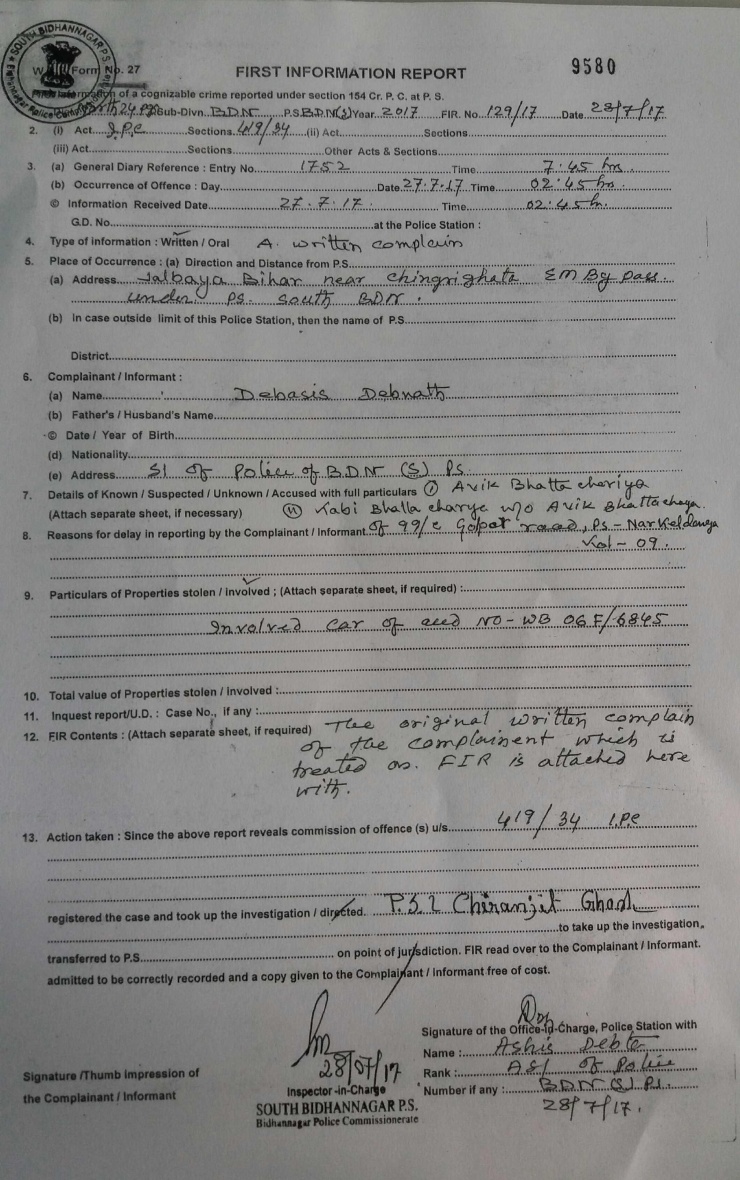 SOUTH BIDHANNAGAR P.S.
9580
Form No. 27
FIRST INFORMATION REPORT
of a cognizable crime reported under section 154 Cr. P. C. at P. S.
Sub-Divn. BDN P.S. BDN(S) Year 2017 FIR. No. 129/17 Date 28/7/17
2. (i) Act I.P.C Sections 419/34 (ii) Act Sections
(iii) Act Sections Other Acts & Sections
3. (a) General Diary Reference : Entry No. 1752 Time 7:45 hrs
(b) Occurrence of Offence : Day Date 27.7.17 Time 02:45 hrs.
© Information Received Date 27.7.17. Time 02:45 hr.
G.D. No. at the Police Station :
4. Type of information : Written / Oral A written complain
5. Place of Occurrence : (a) Direction and Distance from P.S.
(a) Address Jalbaya Bihar near chingrighata EM By pass.
under PS. South BDN.
(b) In case outside limit of this Police Station, then the name of P.S.
District
6. Complainant / Informant :
(a) Name Debasis Debnath
(b) Father's / Husband's Name
© Date / Year of Birth
(d) Nationality
(e) Address SI of Police of BDN (S) Ps
7. Details of Known / Suspected / Unknown / Accused with full particulars (i) Avik Bhattachariya
(Attach separate sheet, if necessary) (ii) Kabi Bhallacharya w/o Avik Bhattacharya.
8. Reasons for delay in reporting by the Complainant / Informant of 99/c Gopat road, Ps - Narkeldanga
Kol - 09.
9. Particulars of Properties stolen / involved ; (Attach separate sheet, if required) :
Involved car of accd NO - WB 06F/6845
10. Total value of Properties stolen / involved :
11. Inquest report/U.D. : Case No., if any :
12. FIR Contents : (Attach separate sheet, if required) The original written complain
of the complainent which is
treated as FIR is attached here
with.
13. Action taken : Since the above report reveals commission of offence (s) u/s 419/34 IPC
registered the case and took up the investigation / directed. P.S.I Chiranjit Ghosh
to take up the investigation,
transferred to P.S. on point of jurisdiction. FIR read over to the Complainant / Informant.
admitted to be correctly recorded and a copy given to the Complainant / informant free of cost.
28/07/17
Signature of the Office-in-Charge, Police Station with
Name : Ashis Debta
Rank : ASI of Police
Number if any : BDN (S) Ps.
28/7/17.
Signature /Thumb impression of
the Complainant / Informant
Inspector -in-Charge
SOUTH BIDHANNAGAR P.S.
Bidhannagar Police Commissionerate